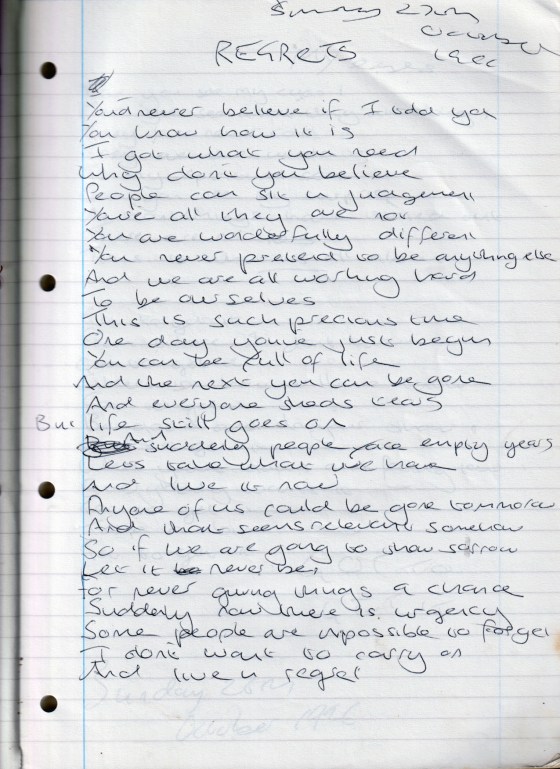 Sunday 27th
October
REGRETS
You'd never believe if I told you
You know how it is
I got what you need
Why don't you believe
People can sit in judgement
You're all they are not
You are wonderfully different
You never pretend to be anything else
And we are all working hard
To be ourselves
This is such precious time
One day you've just begun
You can be full of life
And the next you can be gone
And everyone sheds tears
But life still goes on
And suddenly people face empty years
Lets take what we have
And live it now
Anyone of us could be gone tommorow
And that seems relevant somehow
So if we are going to show sorrow
Let it never be,
for never giving things a chance
Suddenly now there is urgency
Some people are impossible to forget
I dont want to carry on
And live in regret